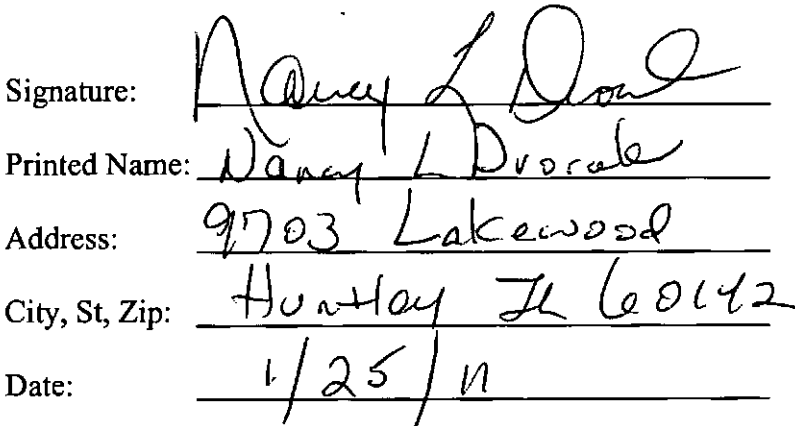 Signature: Nancy L Dvorak
Printed Name: Nancy L Dvorak
Address: 9703 Lakewood
City, St, Zip: Huntley IL 60142
Date: 1/25/11